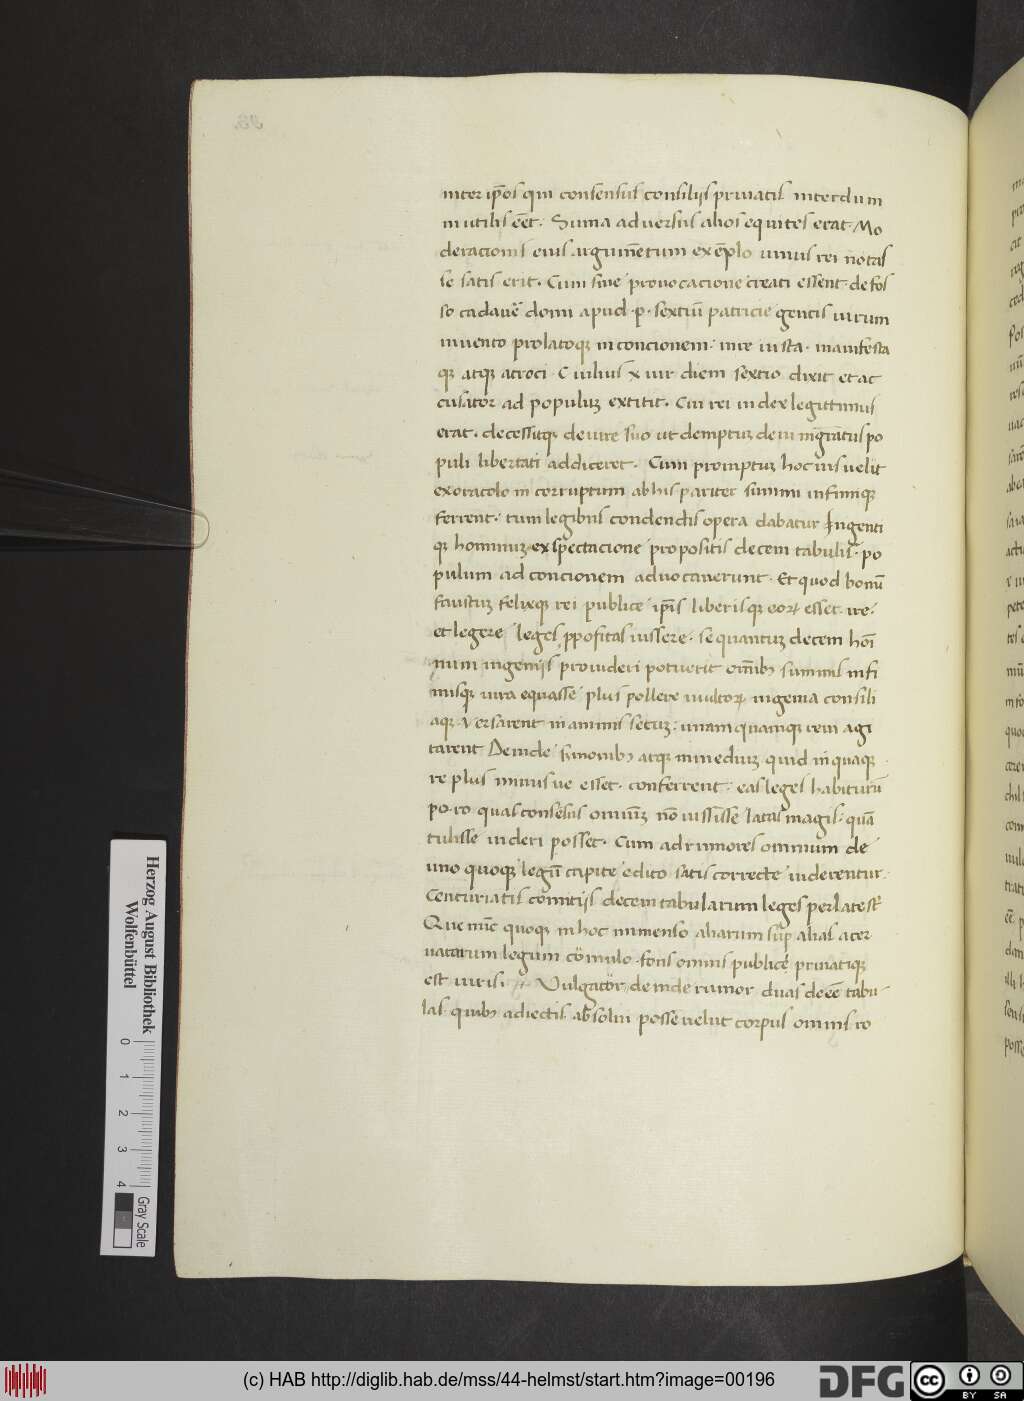 inter ip̄os qui consensus consilijs priuatis interdum
inutilis eēt. Suma aduersus alios equites erat. Mo
deracionis eius argum̄etum exēplo unius rei notas
se satis erit. Cum sine prouocacione creati essent. defos
so cadauē domi apud .p. sextiū patricie gentis uirum
inuento prolatoqȝ in concionem. iure iusta. manifesta
qȝ atqȝ atroci. C iulius x uir diem sextio dixit et ac
cusator ad populuȝ extitit. Cui rei iudex legittimus
erat. decessitqȝ de iure suo ut demptuȝ de ui mg̅ratus po
puli libertati addiceret. Cum promptuȝ hoc ius uelit
ex oracolo in corruptum ab his pariter summi infimiqȝ
ferrent. tum legibus condendis opera dabatur Ingenti
qȝ hominuȝ exspectacione propositis decem tabulis. po
pulum ad concionem aduocauerunt. Et quod bonū
faustuȝ felixqȝ rei publice ip̄is liberisqȝ eoꝝ esset. ire.
et legere leges ꝓpositas iussere. se quantuȝ decem hoī
num ingenijs prouideri potuerit om̄ibꝫ summis infi
misqȝ iura equasse plus pollere multoꝝ ingenia consili
aqȝ. Versarent in animis secuȝ. unam quamqȝ rem agi
tarent Deinde sermonibꝫ atqȝ in mediuȝ quid in quaqȝ
re plus minus ue esset. conferrent. eas leges habiturū
po.ro quas consēsus omniūȝ nō iussisse latas magis. quā
tulisse uideri posset. Cum ad rumores omnium de
uno quoqȝ legū capite edito satis correcte uiderentur.
Centuriatis comitijs decem tabularum leges perlate sr̄
Que nūc quoqȝ in hoc immenso aliarum sup̱ alias acer
uatarum legum cōmulo. fons omnis publice priuatiqȝ
est iuris. Vulgatōr deinde rumor duas deeē tabu
las quibꝫ adiectis absolui posse uelut corpus omnis ro
Herzog August Bibliothek
Wolfenbüttel
0 1 2 3 4
Gray Scale
(c) HAB http://diglib.hab.de/mss/44-helmst/start.htm?image=00196
DFG
cc BY SA